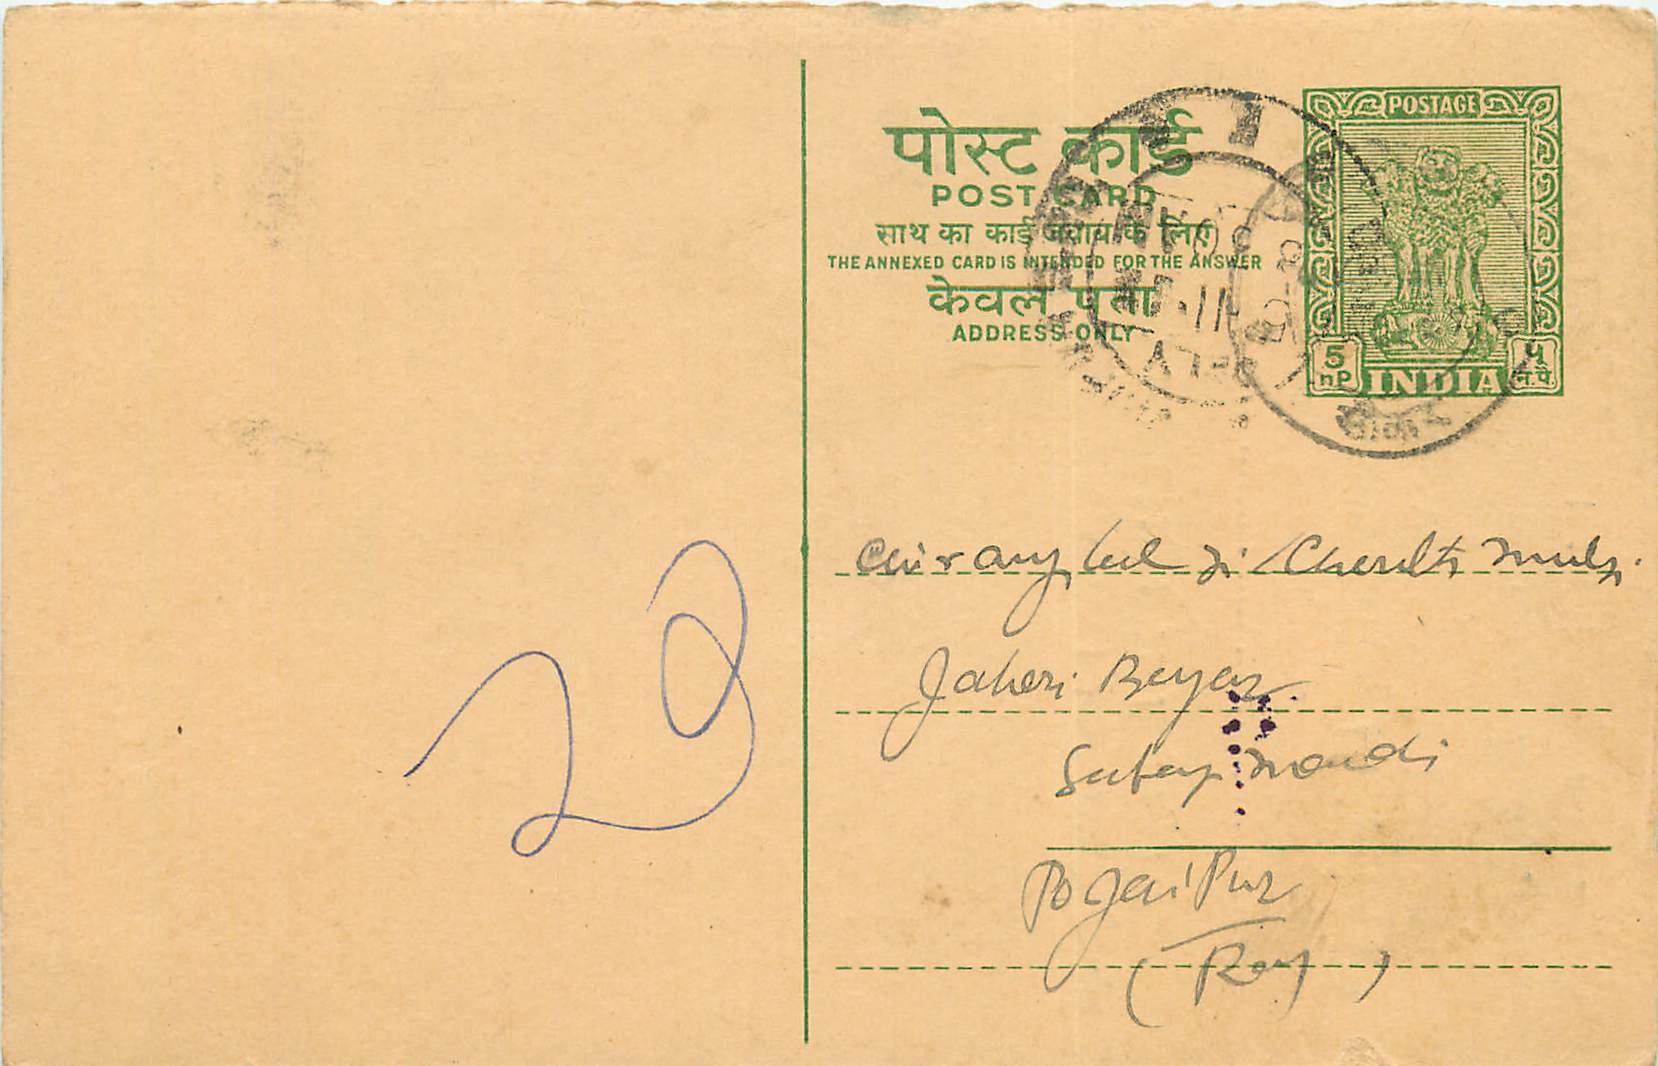 पोस्ट कार्ड
POST CARD
साथ का कार्ड जवाब के लिए
THE ANNEXED CARD IS INTENDED FOR THE ANSWER
केवल पता
ADDRESS ONLY
POSTAGE
5 nP
INDIA
५ न.पै.
DELY
Chirangi lal Ji
Jaheri Bazar
Sabzi Mandi
PO Jaipur
(Raj)